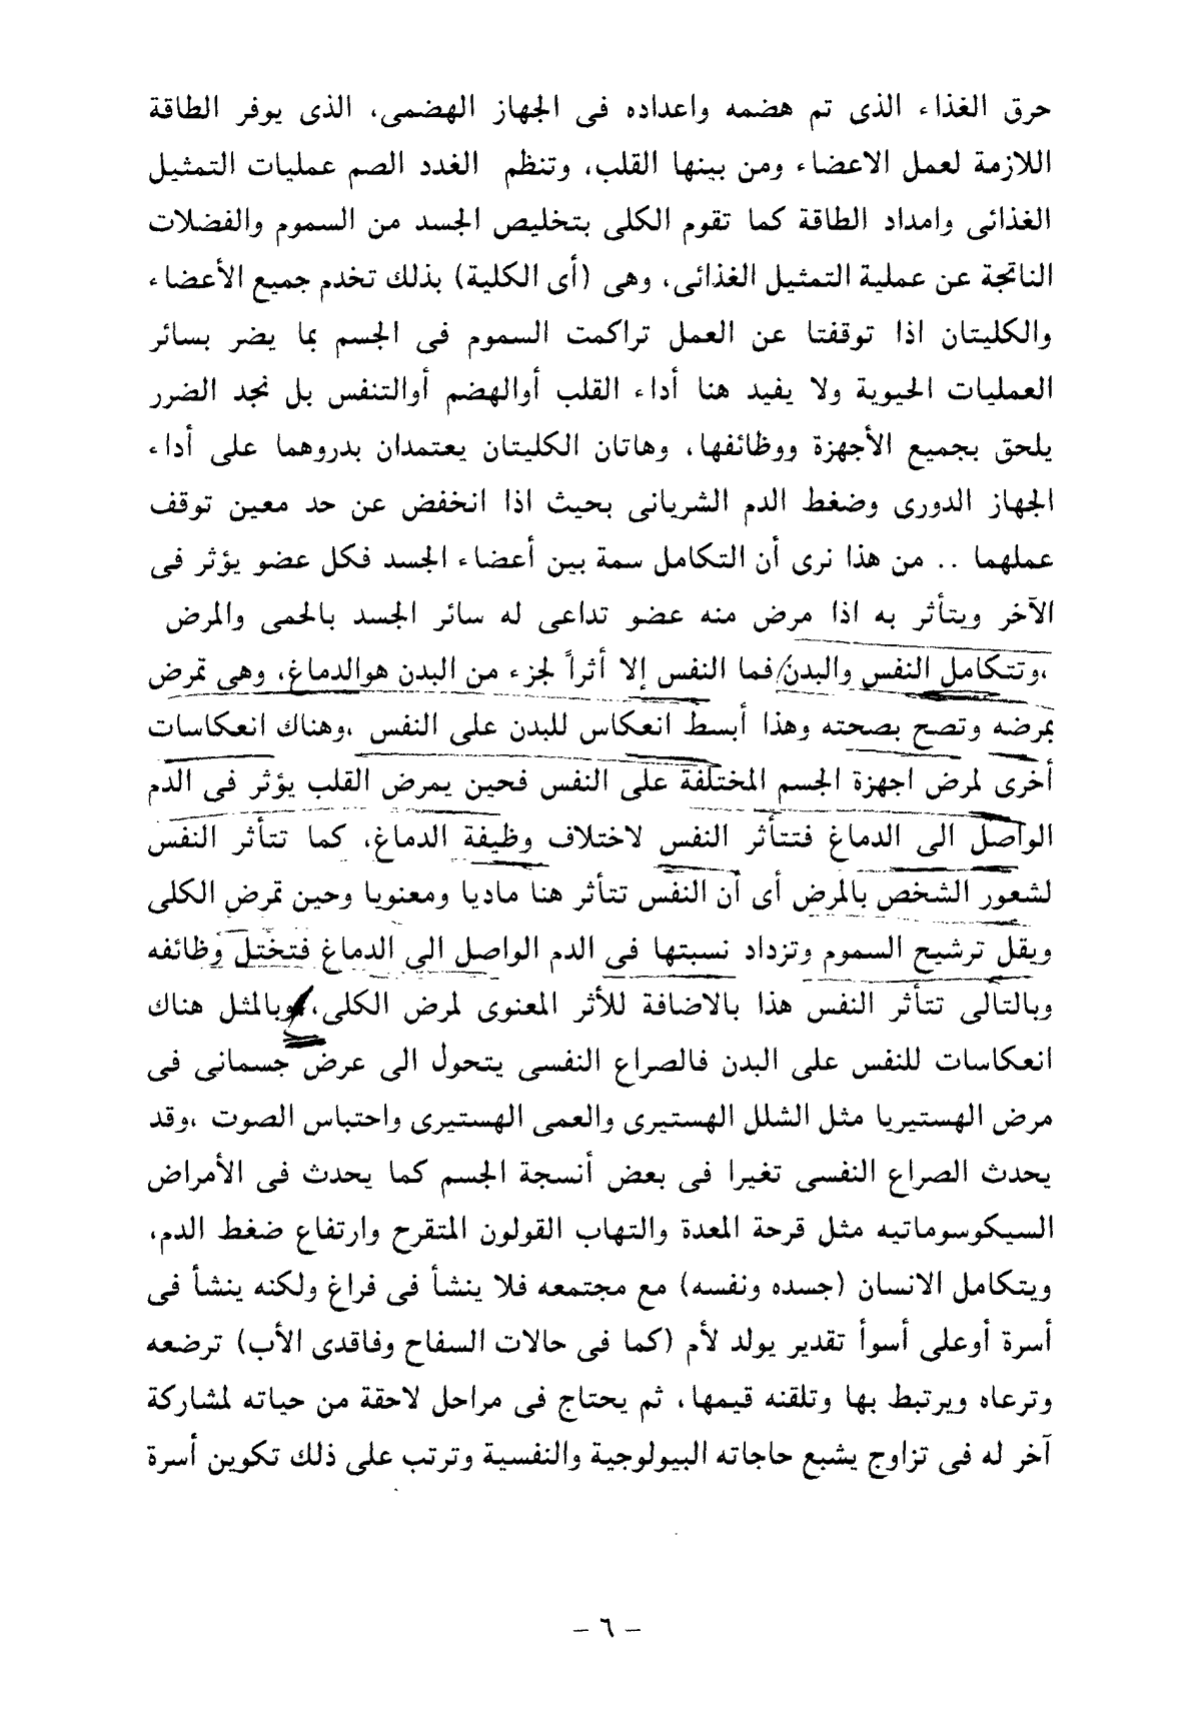 حرق الغذاء الذى تم هضمه واعداده فى الجهاز الهضمى، الذى يوفر الطاقة
اللازمة لعمل الاعضاء ومن بينها القلب، وتنظم الغدد الصم عمليات التمثيل
الغذائى وامداد الطاقة كما تقوم الكلى بتخليص الجسد من السموم والفضلات
الناتجة عن عملية التمثيل الغذائى، وهى (أى الكلية) بذلك تخدم جميع الأعضاء
والكليتان اذا توقفتا عن العمل تراكمت السموم فى الجسم بما يضر بسائر
العمليات الحيوية ولا يفيد هنا أداء القلب أوالهضم أوالتنفس بل نجد الضرر
يلحق بجميع الأجهزة ووظائفها، وهاتان الكليتان يعتمدان بدروهما على أداء
الجهاز الدورى وضغط الدم الشريانى بحيث اذا انخفض عن حد معين توقف
عملهما .. من هذا نرى أن التكامل سمة بين أعضاء الجسد فكل عضو يؤثر فى
الآخر ويتأثر به اذا مرض منه عضو تداعى له سائر الجسد بالحمى والمرض
،وتتكامل النفس والبدن/فما النفس إلا أثراً لجزء من البدن هوالدماغ، وهى تمرض
بمرضه وتصح بصحته وهذا أبسط انعكاس للبدن على النفس ،وهناك انعكاسات
أخرى لمرض اجهزة الجسم المختلفة على النفس فحين يمرض القلب يؤثر فى الدم
الواصل الى الدماغ فتتأثر النفس لاختلاف وظيفة الدماغ، كما تتأثر النفس
لشعور الشخص بالمرض أى أن النفس تتأثر هنا ماديا ومعنويا وحين تمرض الكلى
ويقل ترشيح السموم وتزداد نسبتها فى الدم الواصل الى الدماغ فتختل وظائفه
وبالتالى تتأثر النفس هذا بالاضافة للأثر المعنوى لمرض الكلى، وبالمثل هناك
انعكاسات للنفس على البدن فالصراع النفسى يتحول الى عرض جسمانى فى
مرض الهستيريا مثل الشلل الهستيرى والعمى الهستيرى واحتباس الصوت ،وقد
يحدث الصراع النفسى تغيرا فى بعض أنسجة الجسم كما يحدث فى الأمراض
السيكوسوماتيه مثل قرحة المعدة والتهاب القولون المتقرح وارتفاع ضغط الدم،
ويتكامل الانسان (جسده ونفسه) مع مجتمعه فلا ينشأ فى فراغ ولكنه ينشأ فى
أسرة أوعلى أسوأ تقدير يولد لأم (كما فى حالات السفاح وفاقدى الأب) ترضعه
وترعاه ويرتبط بها وتلقنه قيمها، ثم يحتاج فى مراحل لاحقة من حياته لمشاركة
آخر له فى تزاوج يشبع حاجاته البيولوجية والنفسية وترتب على ذلك تكوين أسرة
– ٦ –